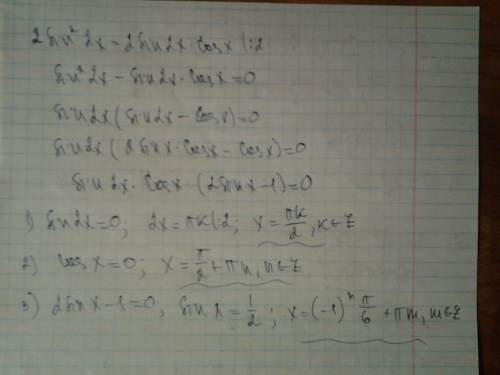 2sin²2x=2sin2x·cosx |:2
sin²2x-sin2x·cosx=0
sin2x(sin2x-cosx)=0
sin2x(2sinx·cosx-cosx)=0
sin2x·cosx·(2sinx-1)=0
1) sin2x=0; 2x=πk|:2; x=πk/2, k∈Z
2) cosx=0; x=π/2+πn, n∈Z
3) 2sinx-1=0; sinx=1/2; x=(-1)ⁿ π/6+πm, m∈Z